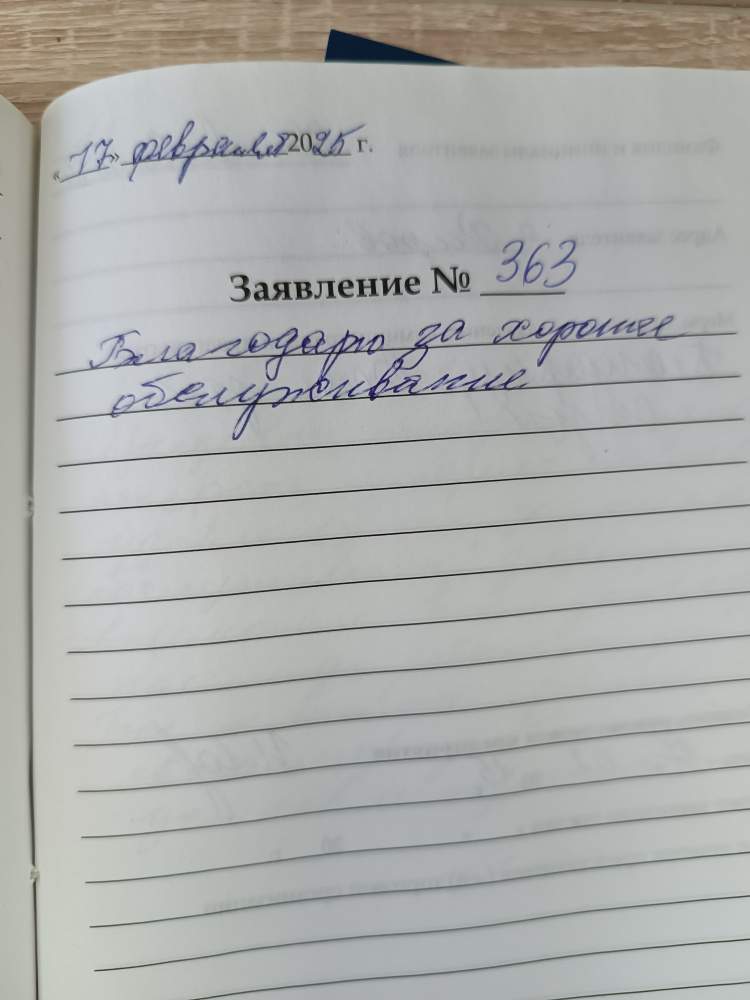 «17» февраля 2025 г.
Заявление № 363
Благодарю за хорошее
обслуживание